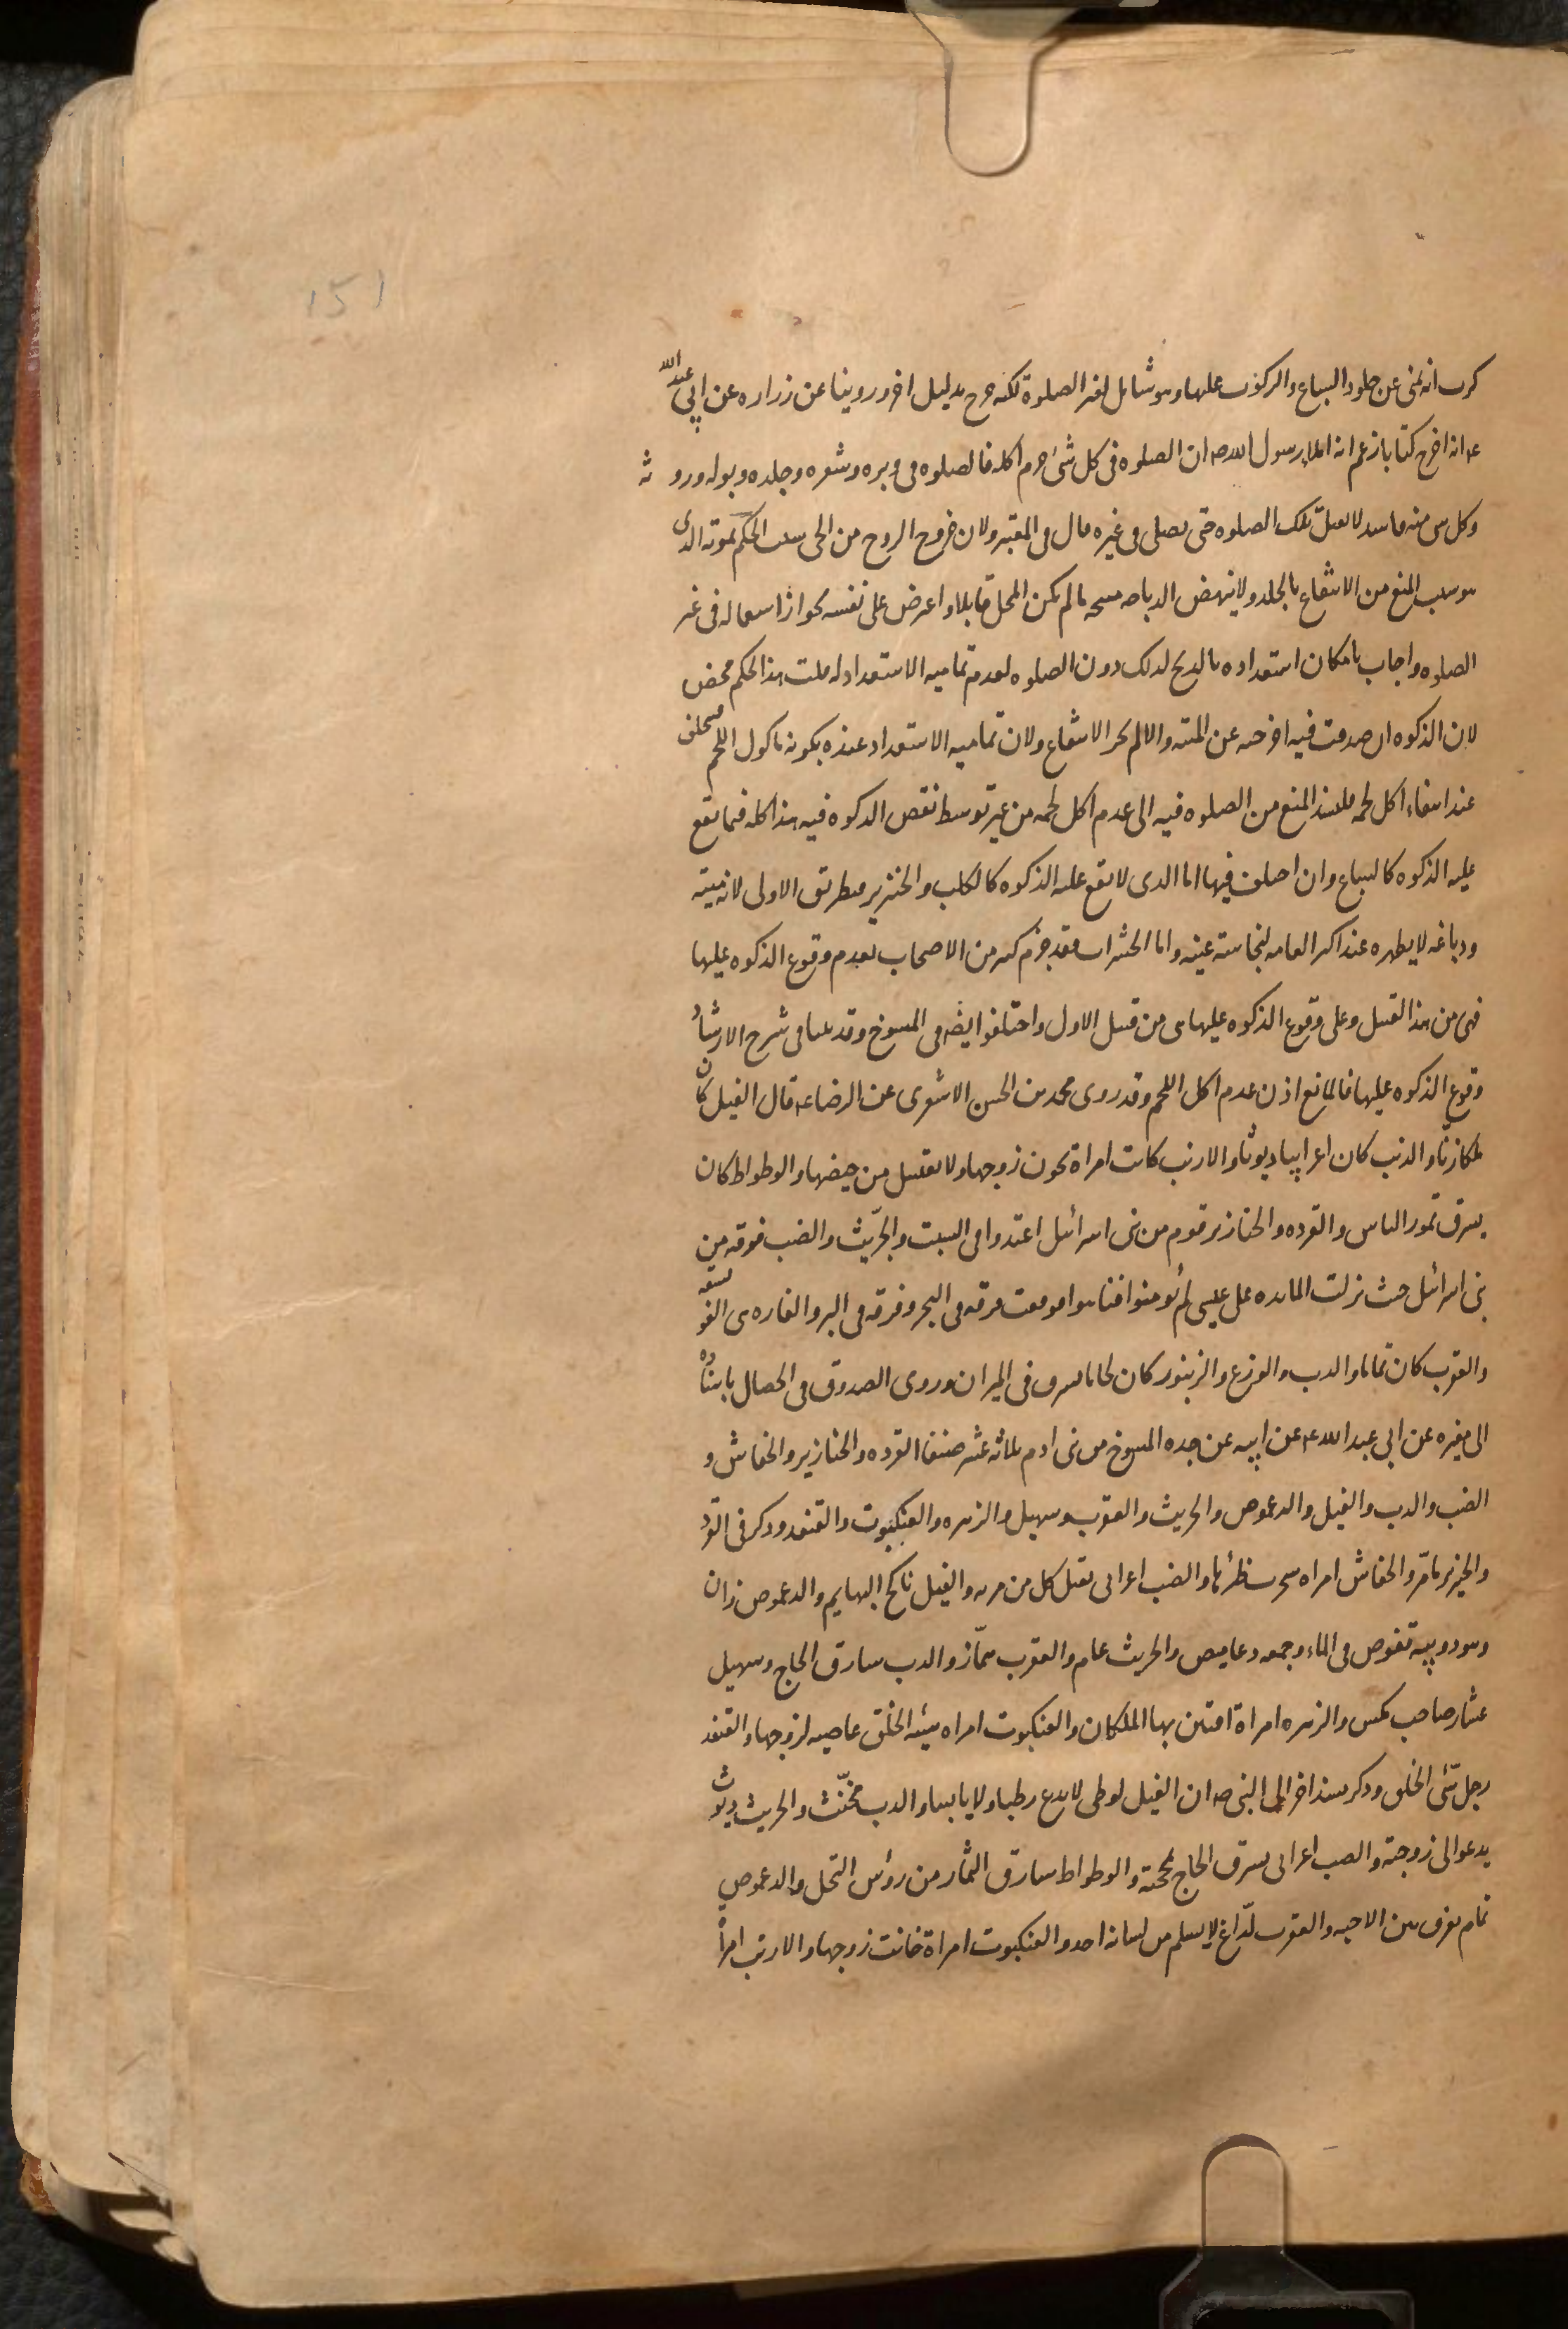 151
كرب انه نهى عن جلود السباع والركوب عليها وهو شامل لغير الصلوة لكنه خرج بدليل اخر وروينا عن زراره عن ابي عبد الله
عه انه اخرج كتابا زعم انه املاء رسول الله صه ان الصلوه فى كل شئ حرم اكله فالصلوه فى وبره وشعره وجلده وبوله وروثه
وكل شى منه فاسد لا تقبل تلك الصلوه حتى يصلى فى غيره قال فى المعتبر ولان خروج الروح من الحى سبب الحكم بموته الذى
هو سبب المنع من الانتفاع بالجلد ولا ينهض الدباغه مبيحه ما لم يكن المحل قابلا واعترض على نفسه بجواز استعماله فى غير
الصلوه واجاب بامكان استعداده بالذبح لذلك دون الصلوه لعدم تماميه الاستعداد له قلت هذا تحكم محض
لان الذكوه ان صدقت فيه اخرجته عن الميته والا لم يجز الانتفاع ولان تماميه الاستعداد عنده بكونه ماكول اللحم فيتخلف
عند انتفاء اكل لحمه فليستند المنع من الصلوه فيه الى عدم اكل لحمه من غير توسط نقص الذكوه فيه هذا كله فيما تقع
عليه الذكوه كالسباع وان اختلف فيها اما الذى لا يقع عليه الذكوه كالكلب والخنزير فبطريق الاولى لانه ميته
ودباغه لا يطهره عند اكثر العامه لنجاسته عينه واما الحشرات فقد جزم كثير من الاصحاب بعدم وقوع الذكوه عليها
فهى من هذا القبيل وعلى وقوع الذكوه عليها هى من قبيل الاول واختلفوا ايضا فى المسوخ وقد بينا فى شرح الارشاد
وقوع الذكوه عليها فالمانع اذن عدم اكل اللحم وقد روى محمد بن الحسن الاشعرى عن الرضا عه قال الفيل كان
ملكا زنّاء والذئب كان اعرابيا ديوثا والارنب كانت امراة تخون زوجها ولا تغتسل من حيضها والوطواط كان
يسرق تمور الناس والقرده والخنازير قوم من بنى اسرائيل اعتدوا فى السبت والجرّيث والضب فرقه من
بنى اسرائيل حيث نزلت المائده على عيسى لم يؤمنوا فتاهوا فوقعت فرقه فى البحر وفرقه فى البر والفاره هى الفويسقه
والعقرب كان نماما والدب والوزغ والزنبور كان لحاما يسرق فى الميزان وروى الصدوق فى الخصال باسناده
الى مغيره عن ابي عبد الله عه عن ابيه عن جده المسوخ من بنى ادم ثلاثه عشر صنفا القرده والخنازير والخفاش و
الضب والدب والفيل والدعموص والجريث والعقرب وسهيل والزهره والعنكبوت والقنفد وذكر فى القرد
والخنزير ما مرّ والخفاش امراه سحرت ظئرا لها والضب اعرابى يقتل كل من مر به والفيل ناكح البهايم والدعموص زان
وهو دويبه تغوص فى الماء وجمعه دعاميص والجريث نمام والعقرب همّاز والدب سارق الحاج وسهيل
عشار صاحب مكس والزهره امراة افتتن بها الملكان والعنكبوت امراه سيئه الخلق عاصيه لزوجها والقنفد
رجل سّئ الخلق وذكر بسند اخر الى النبى صه ان الفيل لوطى لا يدع رطبا ولا يابسا والدب مخنّث والجريث ديوث
يدعو الى زوجته والضب اعرابى يسرق الحاج بمحجنه والوطواط سارق الثمار من رؤس النخل والدعموص
نمام يفرق بين الاحبه والعقرب لدّاغ لا يسلم من لسانه احد والعنكبوت امراة خانت زوجها والارنب امراة